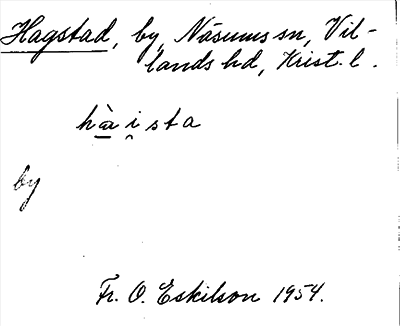 Hagstad, by, Näsums sn, Vil-
lands hd, Krist. l.
hài̯sta
by
Fr. O. Eskilson 1954.